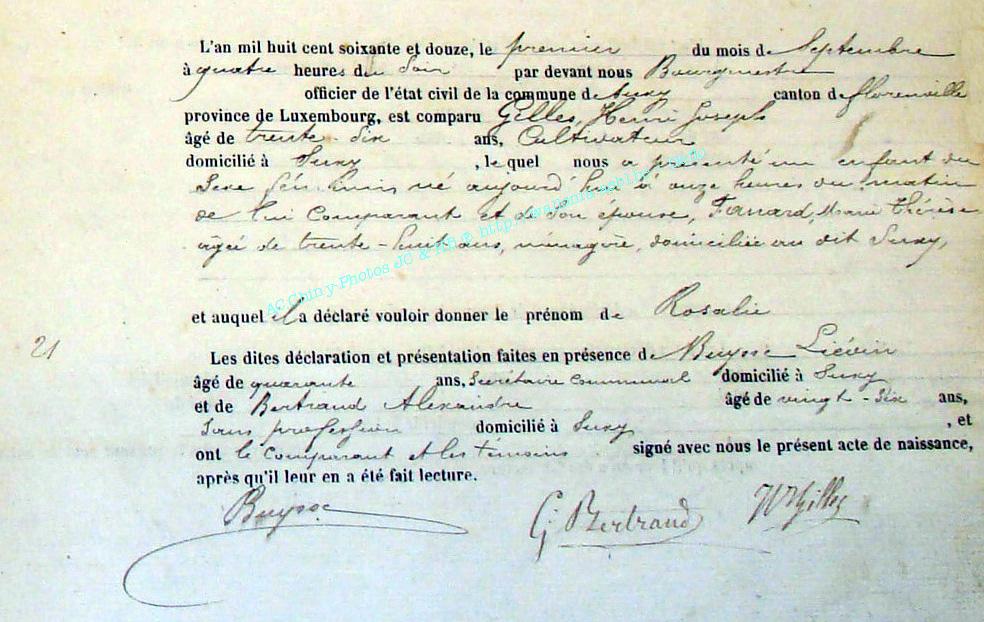 L'an mil huit cent soixante et douze, le premier du mois de Septembre
à quatre heures du Soir par devant nous Bourgmestre
officier de l'état civil de la commune de Suxy canton de florenville
province de Luxembourg, est comparu Gilles, Henri Joseph
âgé de trente-six ans, Cultivateur
domicilié à Suxy, le quel nous a présenté un enfant du
Sexe féminin né aujourd'hui à onze heures du matin
de lui Comparant et de son épouse, Fanard, Marie Thérèse
âgée de trente-huit ans, ménagère, domiciliée au dit Suxy,
AC Chiny-Photos JC & RB @ http://
et auquel il a déclaré vouloir donner le prénom de Rosalie
21
Les dites déclaration et présentation faites en présence de Buysse Liévin
âgé de quarante ans, Secrétaire Communal domicilié à Suxy
et de Bertrand Alexandre âgé de vingt-six ans,
Sans profession domicilié à Suxy, et
ont le Comparant et les témoins signé avec nous le présent acte de naissance,
après qu'il leur en a été fait lecture.
Buysse G Bertrand Gilles